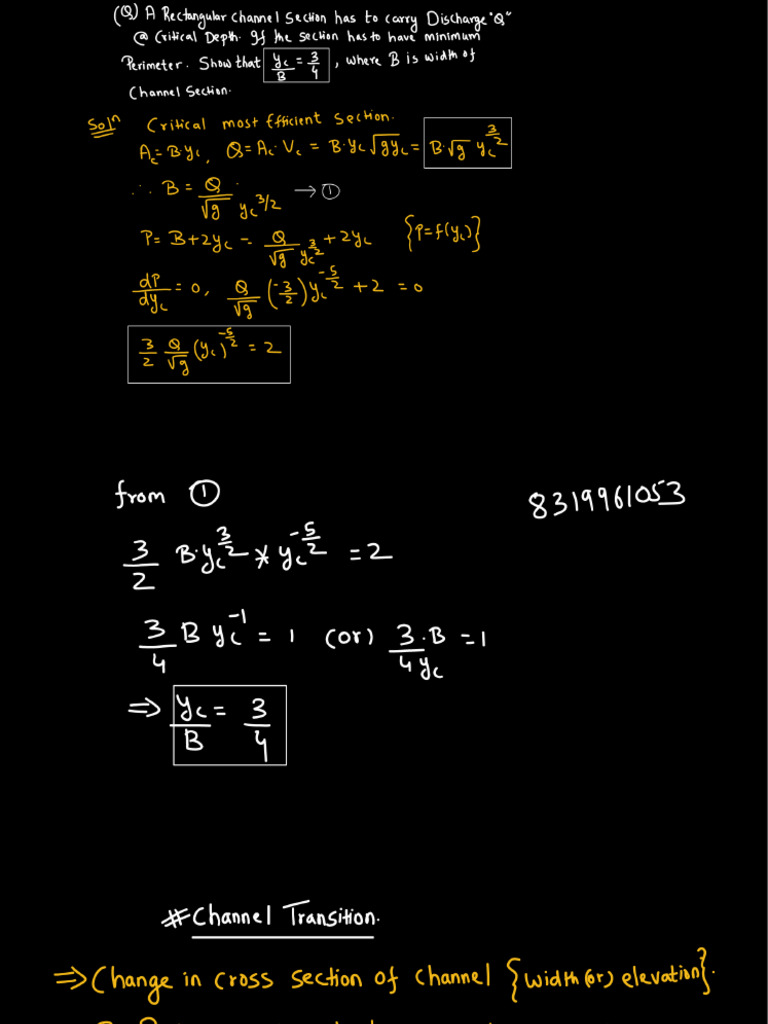 (Q) A Rectangular channel Section has to carry Discharge "Q"
@ Critical Depth. If the section has to have minimum
Perimeter. Show that yc/B = 3/4, where B is width of
Channel Section.
Solⁿ Critical most Efficient Section.
Ac = B·yc, Q = Ac·Vc = B·yc √gyc = B·√g yc^3/2
∴ B = Q/(√g yc^3/2) → ①
P = B + 2yc = Q/(√g yc^3/2) + 2yc {P = f(yc)}
dP/dyc = 0, Q/√g (-3/2) yc^-5/2 + 2 = 0
3/2 Q/√g (yc)^-5/2 = 2
from ①
8319961053
3/2 B·yc^3/2 * yc^-5/2 = 2
3/4 B yc^-1 = 1 (or) 3·B/4yc = 1
⇒ yc/B = 3/4
# Channel Transition.
⇒ Change in cross section of channel {width (or) elevation}.